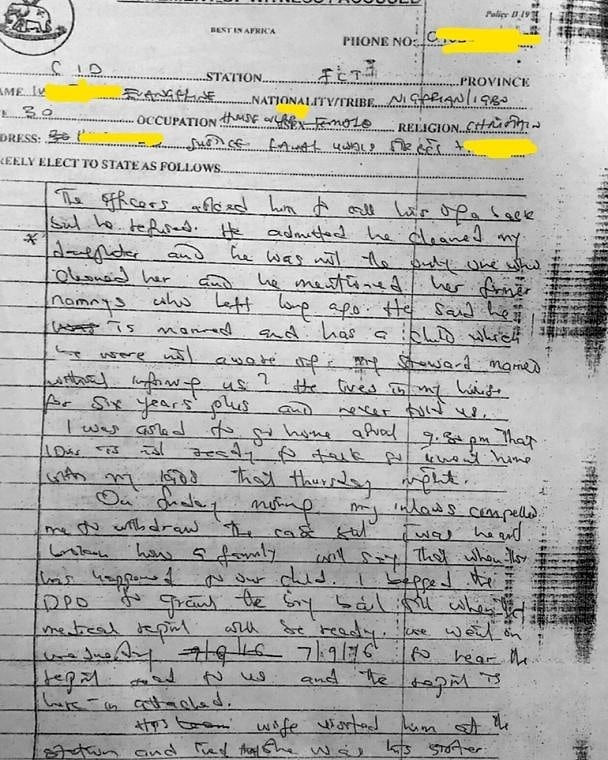 WITNESS/ACCUSED
Police D 19
BEST IN AFRICA
PHONE NO:
C I D STATION. FCT PROVINCE
AME. EVANGELINE NATIONALITY/TRIBE. NIGERIAN/
E 30 OCCUPATION House wife RELIGION. CHRISTIAN
DRESS: JUSTICE STREET
REELY ELECT TO STATE AS FOLLOWS.
The officers asked him to call his oga back
but he refused. He admitted he cleaned my
* daughter and he was not the only one who
cleaned her and he mentioned her former
nannys who left long ago. He said he
is married and has a child which
we were not aware of. my steward married
without informing us? He lives in my house
for six years plus and never told us.
I was asked to go home about 9.30pm that
is not ready to talk so I went home
with my kids that thursday night.
On friday morning my inlaws compelled
me to withdraw the case but I was heart
broken how a family will say that when this
has happened to our child. I begged the
DPO to grant the boy bail till when the
medical report will be ready. we went on
wednesday 7/9/16 to hear the
report read to us and the report is
here-in attached.
His wife visited him at the
station and lied that she was his sister